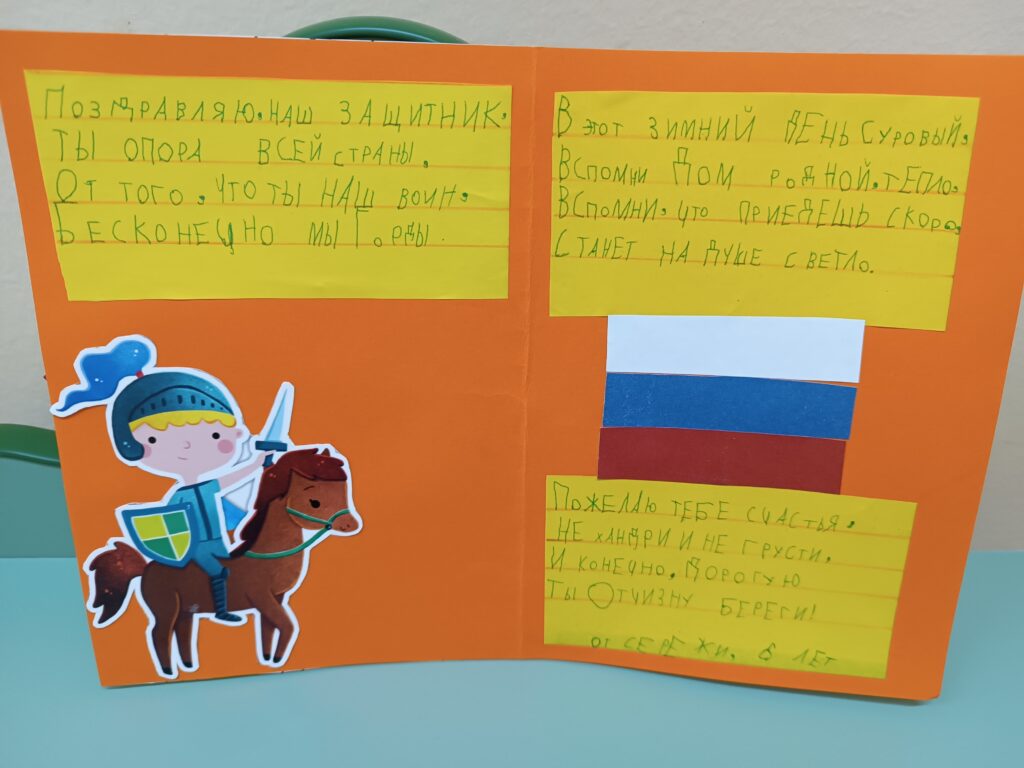 ПОЗДРАВЛЯЮ, НАШ ЗАЩИТНИК,
ТЫ ОПОРА ВСЕЙ СТРАНЫ.
ОТ ТОГО, ЧТО ТЫ НАШ ВОИН,
БЕСКОНЕЧНО МЫ ГОРДЫ.
В ЭТОТ ЗИМНИЙ ДЕНЬ СУРОВЫЙ,
ВСПОМНИ ДОМ РОДНОЙ, ТЕПЛО,
ВСПОМНИ, ЧТО ПРИЕДЕШЬ СКОРО,
СТАНЕТ НА ДУШЕ СВЕТЛО.
ПОЖЕЛАЮ ТЕБЕ СЧАСТЬЯ,
НЕ ХАНДРИ И НЕ ГРУСТИ,
И КОНЕЧНО, ДОРОГУЮ
ТЫ ОТЧИЗНУ БЕРЕГИ!
ОТ СЕРЕЖИ, 6 ЛЕТ